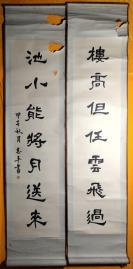 樓高但任雲飛過
池小能將月送來
甲子秋月